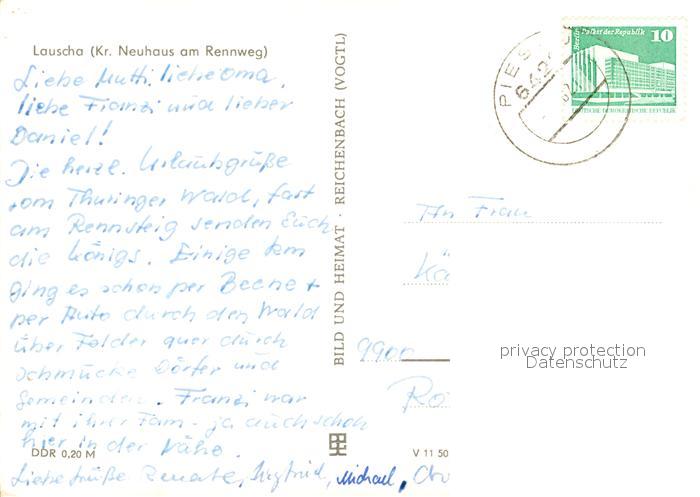 Lauscha (Kr. Neuhaus am Rennweg)
Liebe Mutti, liebe Oma,
liebe Franzi und lieber
Daniel!
Die herzl. Urlaubsgrüße
vom Thüringer Wald, fast
am Rennsteig senden Euch
die Königs. Einige km
ging es schon per Beene +
per Auto durch den Wald
über Felder quer durch
schmucke Dörfer und
Gemeinden. Franzi war
mit ihrer Fam. ja auch schon
hier in der Nähe.
Liebe Grüße Renate, Siegfried, Michael,
DDR 0,20 M
BILD UND HEIMAT · REICHENBACH (VOGTL)
V 11 50
Berlin Palast der Republik 10
DEUTSCHE DEMOKRATISCHE REPUBLIK
An Frau
Kä
9900
privacy protection
Datenschutz